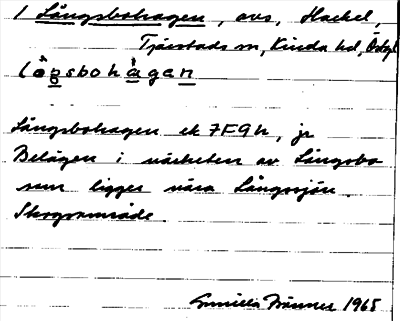 / Långsbohagen, avs, Hackel,
Tjärstads sn, Kinda hd, Östgl
långsbohàgen
Långsbohagen ek 7F9h, jr
Belägen i närheten av Långsbo
som ligger nära Långsjön.
Skogsområde.
Gunilla 1965